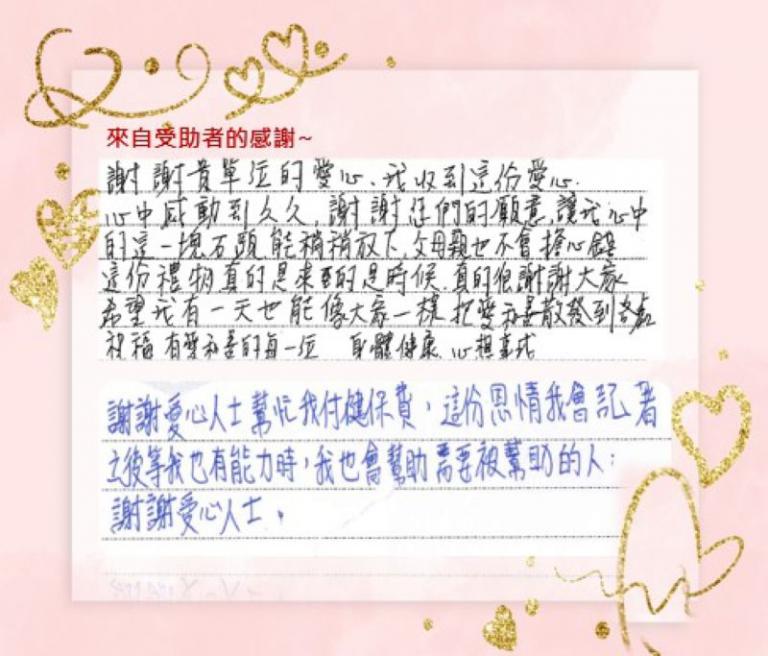 來自受助者的感謝~
謝謝貴單位的愛心、我收到這份愛心.
心中感動到久久,謝謝您們的願意,讓我心中
的這一塊石頭能稍稍放下,父母親也不會擔心錢
這份禮物真的是來的是時候,真的很謝謝大家
希望我有一天也能像大家一樣把愛散發到各處
祝福有愛的每一位 身體健康 心想事成
謝謝愛心人士幫忙我付健保費,這份恩情我會記著
之後等我也有能力時,我也會幫助需要被幫助的人:
謝謝愛心人士。